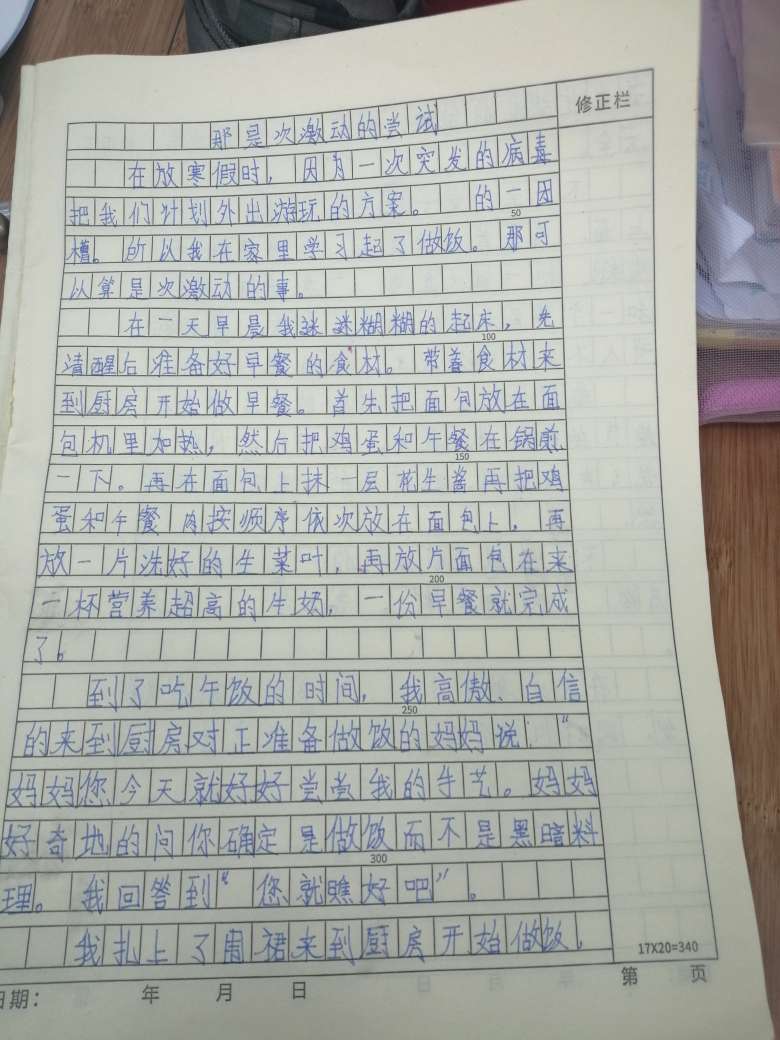 修正栏
那是次激动的尝试
在放寒假时，因为一次突发的病毒
把我们计划外出游玩的方案。的一团
50
糟。所以我在家里学习起了做饭。那可
以算是次激动的事。
在一天早晨我迷迷糊糊的起床，先
100
清醒后准备好早餐的食材。带着食材来
到厨房开始做早餐。首先把面包放在面
包机里加热，然后把鸡蛋和午餐在锅煎
150
一下。再在面包上抹一层花生酱再把鸡
蛋和午餐肉按顺序依次放在面包上，再
放一片洗好的生菜叶，再放片面包在来
200
一杯营养超高的牛奶，一份早餐就完成
了。
到了吃午饭的时间，我高傲、自信
250
的来到厨房对正准备做饭的妈妈说“
妈妈您今天就好好尝尝我的手艺。妈妈
好奇地的问你确定是做饭而不是黑暗料
300
理。我回答到“您就瞧好吧”。
我扎上了围裙来到厨房开始做饭，
17X20=340
日期： 年 月 日 第 页